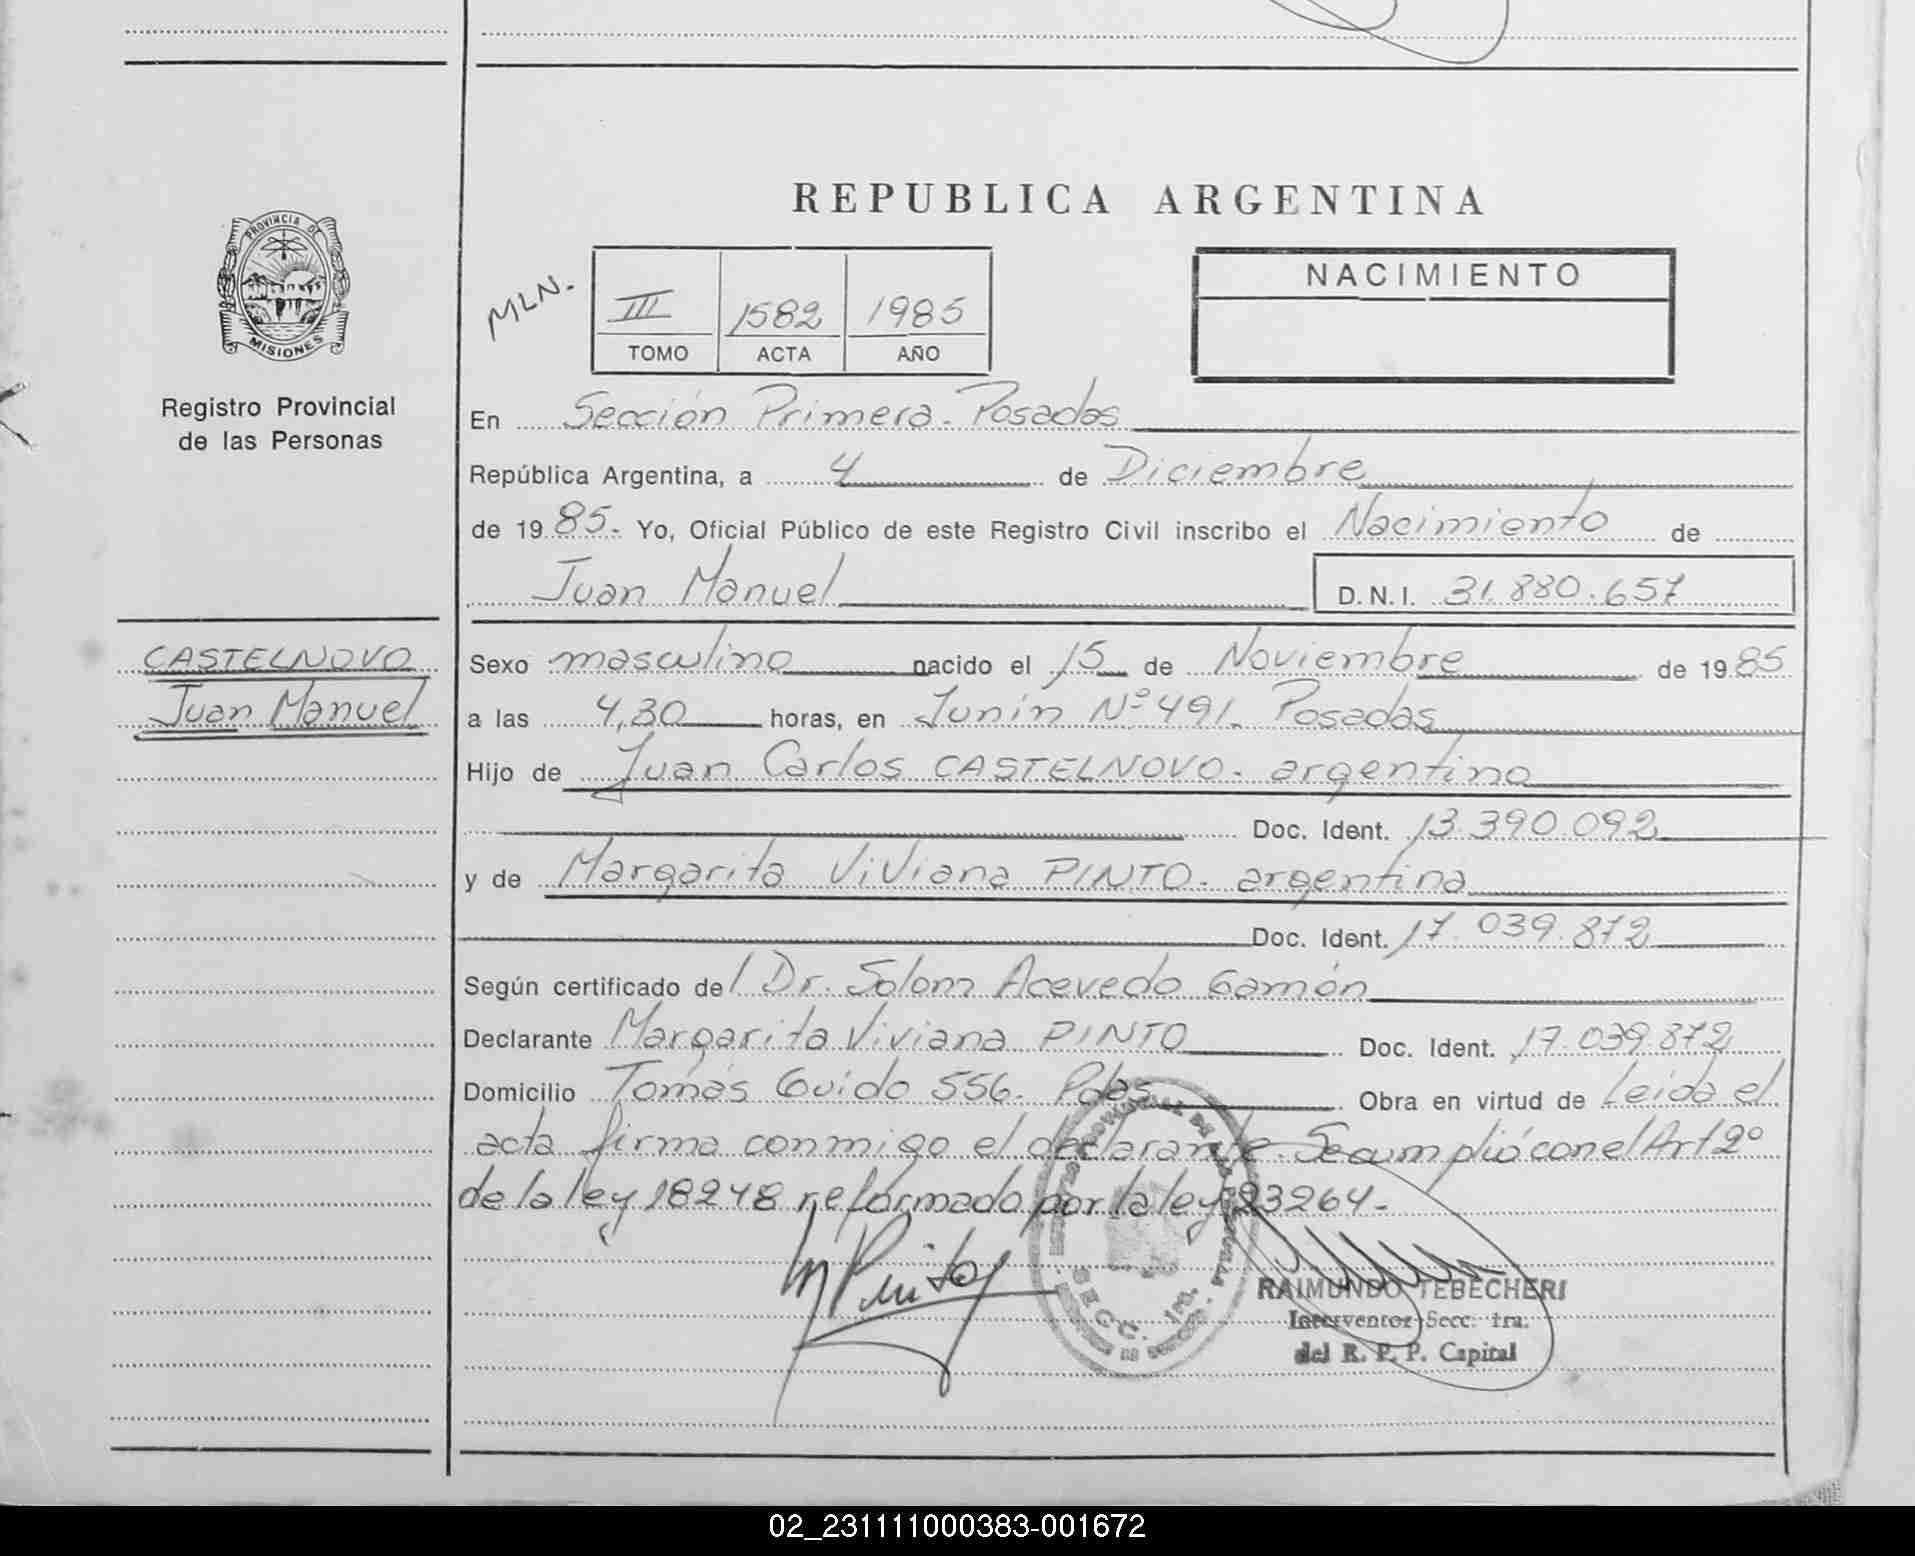 REPUBLICA ARGENTINA
PROVINCIA DE
MISIONES
Registro Provincial
de las Personas
MLN.
III 1582 1985
TOMO ACTA AÑO
NACIMIENTO
En Sección Primera. Posadas
República Argentina, a 4 de Diciembre
de 1985. Yo, Oficial Público de este Registro Civil inscribo el Nacimiento de
Juan Manuel D.N.I. 31.880.657
CASTELNOVO
Juan Manuel
Sexo masculino nacido el 15 de Noviembre de 1985
a las 4,30 horas, en Junín Nº 491. Posadas
Hijo de Juan Carlos CASTELNOVO. argentino
Doc. Ident. 13.390.092
y de Margarita Viviana PINTO. argentina
Doc. Ident. 17.039.872
Según certificado del Dr. Solom Acevedo Gamón
Declarante Margarita Viviana PINTO Doc. Ident. 17.039.872
Domicilio Tomás Guido 556. Pdas Obra en virtud de Leida el
acta firma conmigo el declarante. Se cumplió con el Art 2º
de la ley 18248 reformado por la ley 23264-
M Pinto
SECC. 1ra.
RAIMUNDO TEBECHERI
Interventor Secc. 1ra.
del R. P. P. Capital
02_231111000383-001672